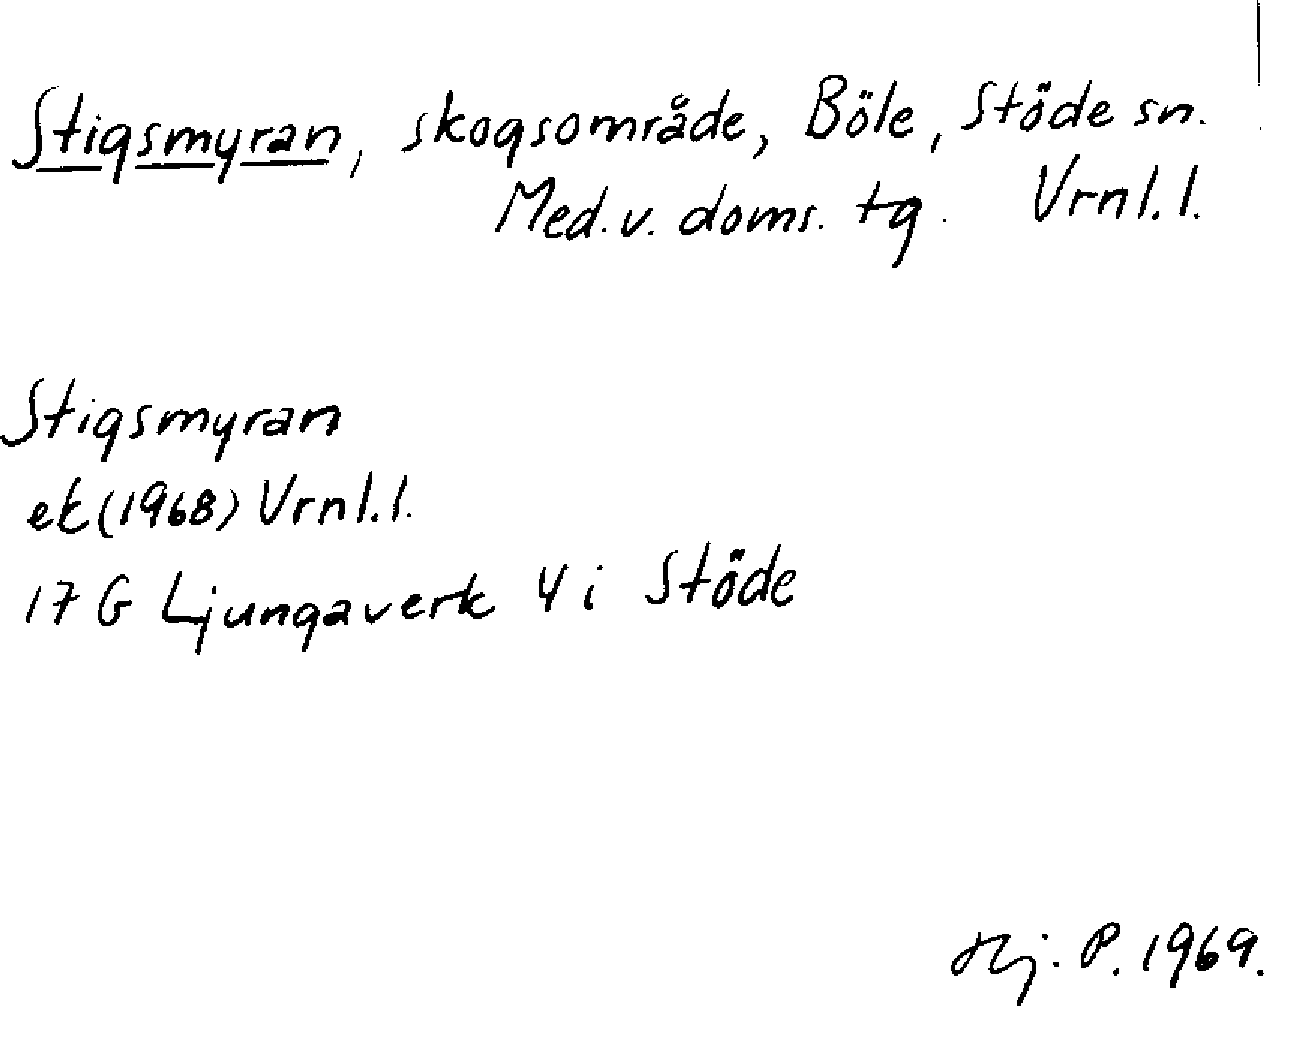 Stigsmyran, skogsområde, Böle, Stöde sn.
Med. v. doms. tg. Vrnl. l.
Stigsmyran
ek (1968) Vrnl. l.
17 G Ljungaverk 4 i Stöde
Hj. P. 1969.